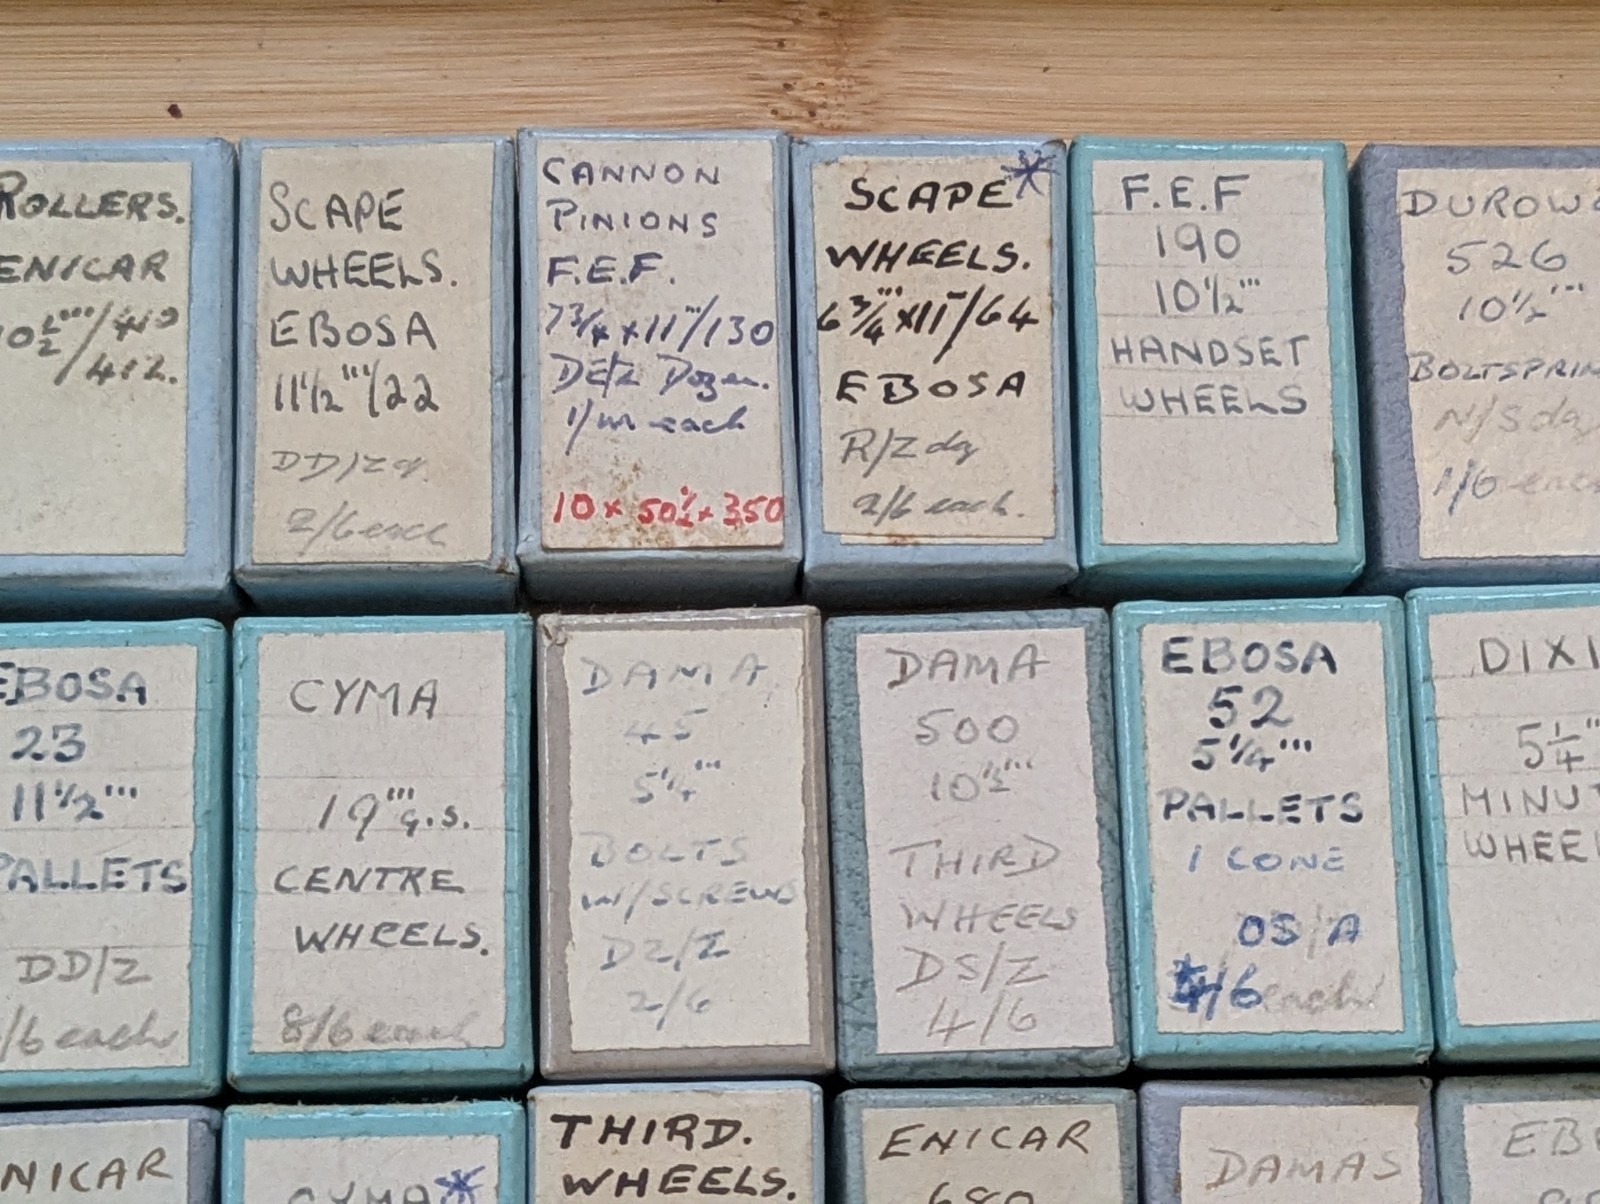 ROLLERS.
ENICAR
10½'''/410
/412.
SCAPE
WHEELS.
EBOSA
11½'''/22
DD/Z
2/6 each
CANNON
PINIONS
F.E.F.
7¾ x 11'''/130
Dozen.
each
10 x 50½ x 350
SCAPE
WHEELS.
6¾''' x 11/64
EBOSA
R/Z
2/6 each.
F.E.F
190
10½'''
HANDSET
WHEELS
DUROWE
526
10½'''
BOLTSPRIN
N/S
1/6
EBOSA
23
11½'''
PALLETS
DD/Z
/6 each
CYMA
19''' g.s.
CENTRE
WHEELS.
8/6 each
DAMA
45
5¼'''
BOLTS
W/SCREWS
DZ/Z
2/6
DAMA
500
10½'''
THIRD
WHEELS
DS/Z
4/6
EBOSA
52
5¼'''
PALLETS
1 CONE
OS/A
4/6 each
DIXI
5¼''
MINUT
WHEEL
NICAR
CYMA
THIRD.
WHEELS.
ENICAR
680
DAMAS
EB